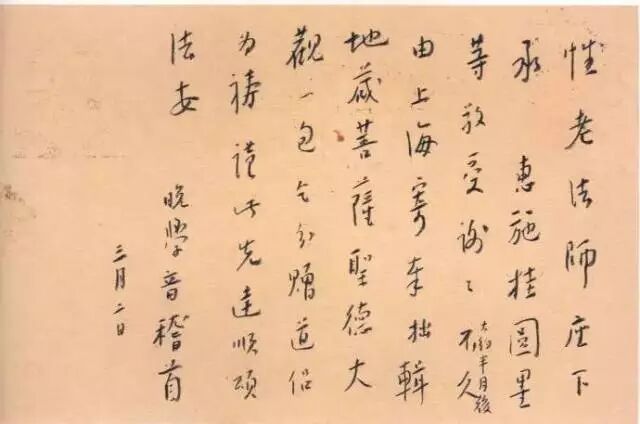 性老法師座下
承　惠施桂圓墨
等敬受謝〻不久大約半月後
由上海寄奉拙輯
地藏菩薩聖德大
觀一包乞分贈道侶
為禱謹此先達順頌
法安
晚學音稽首
三月二日